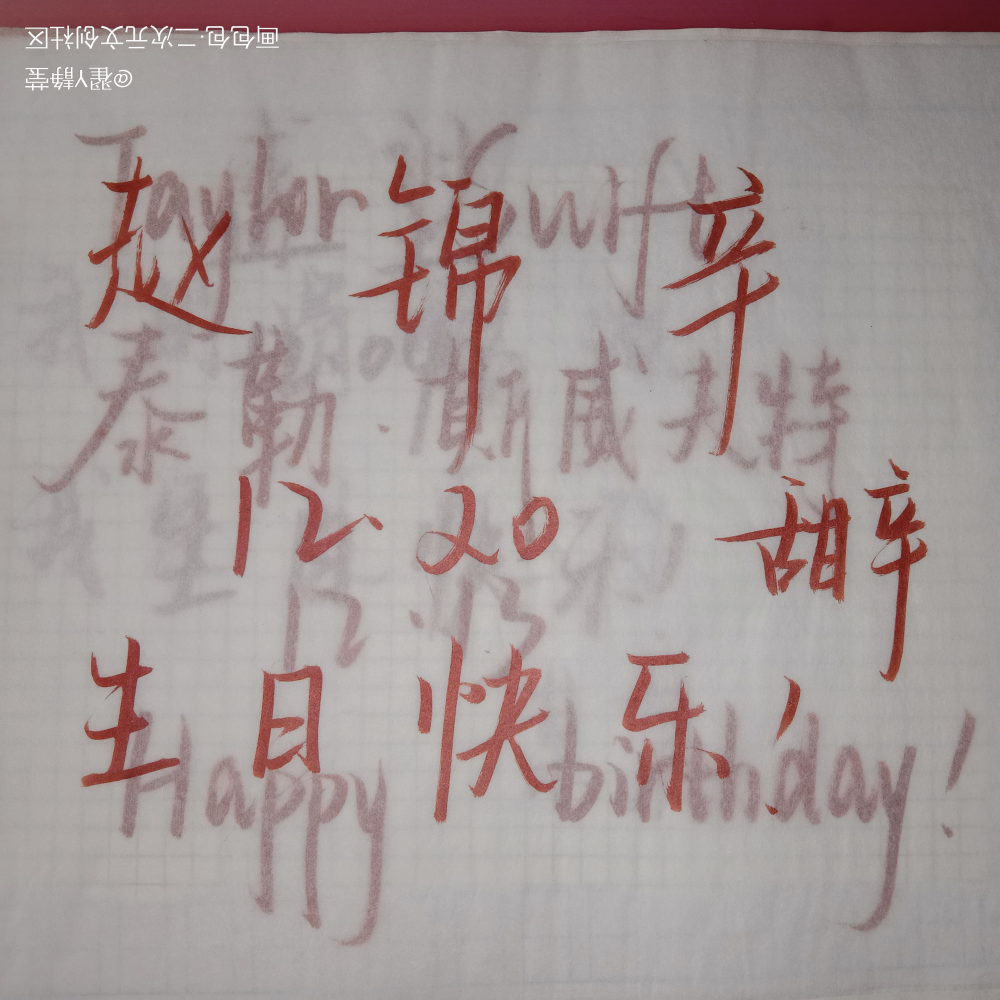 赵锦辛
12.20 甜辛
生日快乐!
Taylor Swift
泰勒·斯威夫特
12.13
Happy birthday!
画包包·二次元文创社区
@翟Y静莹